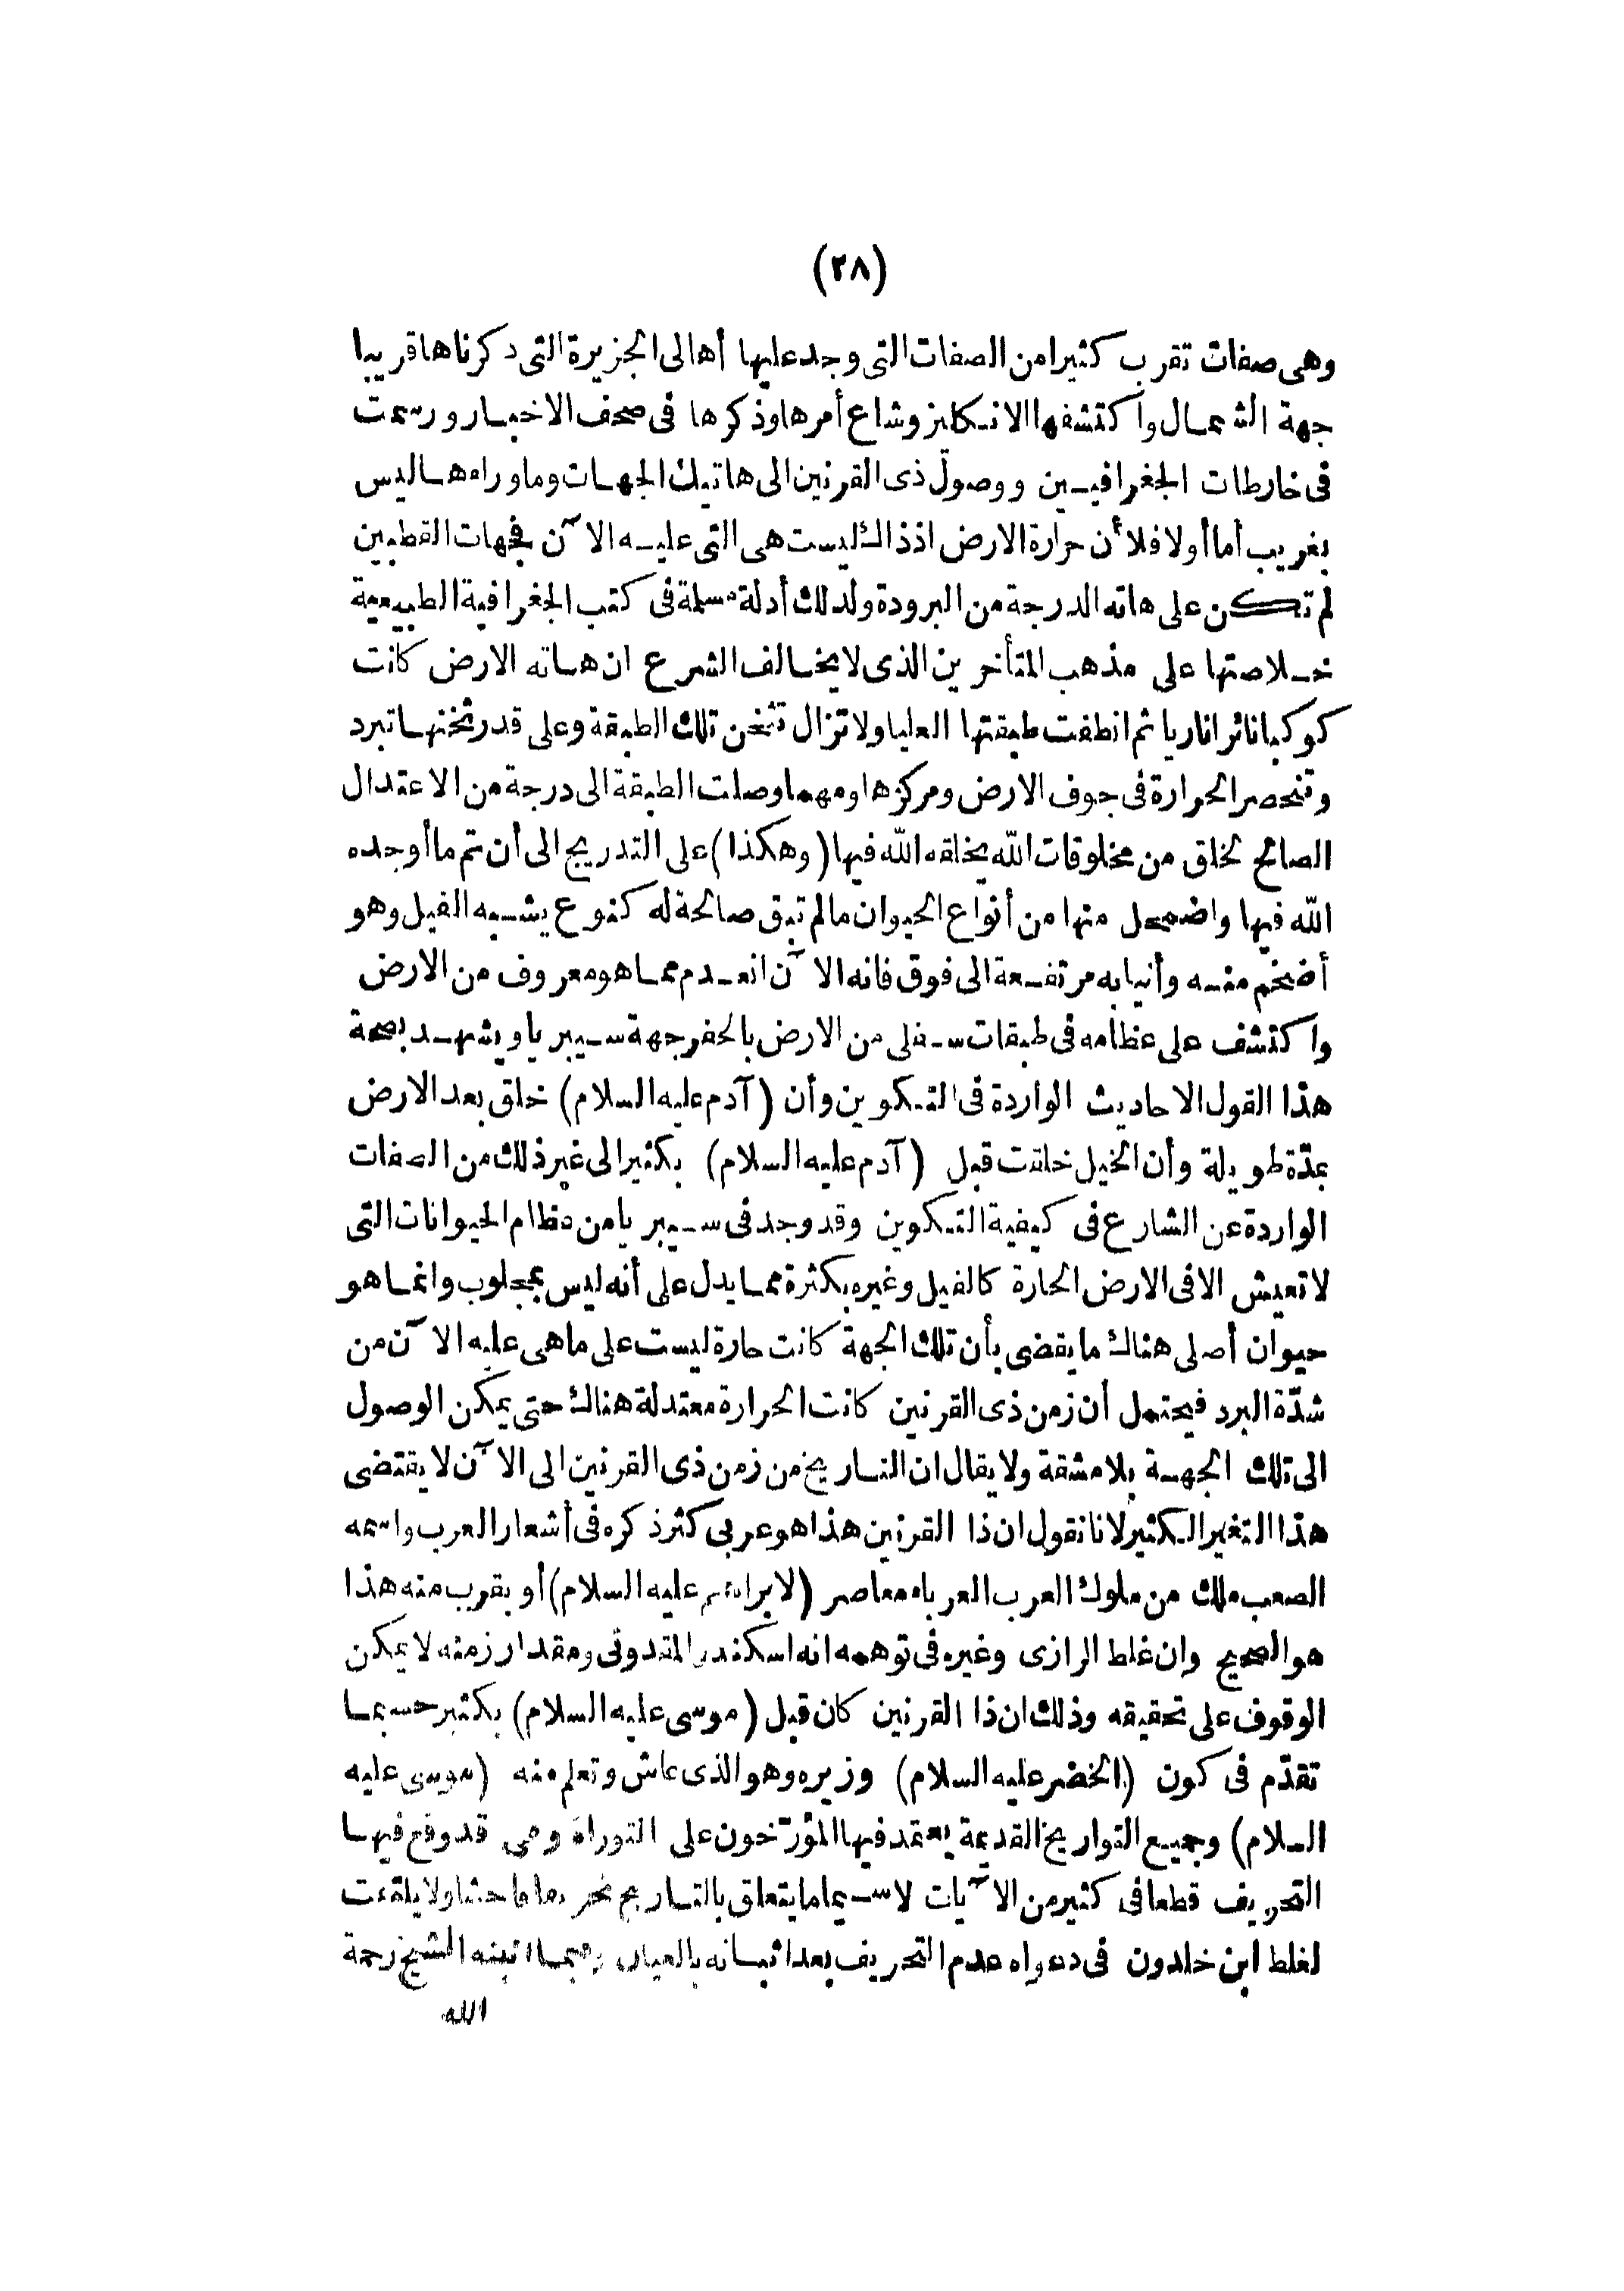 (٢٨)
وهى صفات تقرب كثيرا من الصفات التى وجد عليها أهالى الجزيرة التى ذكرناها قريبا
جهة الشمال واكتشفها الانكليز وشاع أمرها وذكرها فى صحف الاخبار ورسمت
فى خارطات الجغرافيين ووصول ذى القرنين الى هاتيك الجهات وما وراءها ليس
بغريب أما أولا فلأن حرارة الارض اذذاك ليست هى التى عليه الآن فجهات القطبين
لم تكن على هاته الدرجة من البرودة ولذلك أدلة مسلمة فى كتب الجغرافية الطبيعية
خلاصتها على مذهب المتأخرين الذى لا يخالف الشرع ان هاته الارض كانت
كوكبا نائرا ناريا ثم انطفت طبقتها العليا ولا تزال تثخن تلك الطبقة وعلى قدر ثخنها تبرد
وتنحصر الحرارة فى جوف الارض ومركزها ومهما وصلت الطبقة الى درجة من الاعتدال
الصالح لخلق من مخلوقات الله يخلقه الله فيها (وهكذا) على التدريج الى أن تم ما أوجده
الله فيها واضمحل منها من أنواع الحيوان مالم تبق صالحة له كنوع يشبه الفيل وهو
أضخم منه وأنيابه مرتفعة الى فوق فانه الآن انعدم مما هو معروف من الارض
واكتشف على عظامه فى طبقات سفلى من الارض بالحفر جهة سيبريا ويشهد بصحة
هذا القول الاحاديث الواردة فى التكوين وأن (آدم عليه السلام) خلق بعد الارض
بمدّة طويلة وأن الخيل خلقت قبل (آدم عليه السلام) بكثير الى غير ذلك من الصفات
الواردة عن الشارع فى كيفية التكوين وقد وجد فى سيبريا من عظام الحيوانات التى
لا تعيش الا فى الارض الحارة كالفيل وغيره بكثرة مما يدل على أنه ليس بمجلوب وانما هو
حيوان أصلى هناك ما يقضى بأن تلك الجهة كانت حارة ليست على ما هى عليه الآن من
شدّة البرد فيحتمل أن زمن ذى القرنين كانت الحرارة معتدلة هناك حتى يمكن الوصول
الى تلك الجهة بلا مشقة ولا يقال ان التاريخ من زمن ذى القرنين الى الآن لا يقتضى
هذا التغير الكثير لانا نقول ان ذا القرنين هذا هو عربى كثر ذكره فى أشعار العرب واسمه
الصعب ملك من ملوك العرب العرباء معاصر (لابراهيم عليه السلام) أو يقرب منه هذا
هو الصحيح وان غلط الرازى وغيره فى توهمه انه اسكندر المقدونى ومقدار زمنه لا يمكن
الوقوف على تحقيقه وذلك ان ذا القرنين كان قبل (موسى عليه السلام) بكثير حسبما
تقدّم فى كون (الخضر عليه السلام) وزيره وهو الذى عاش وتعلم منه (موسى عليه
السلام) وجميع التواريخ القديمة يعتمد فيها المؤرّخون على التوراة وهى قد وقع فيها
التحريف قطعا فى كثير من الآيات لا سيما ما يتعلق بالتاريخ ولا يلتفت
لغلط ابن خلدون فى دعواه عدم التحريف بعد اثباته بالعيان الشيخ رحمة
الله